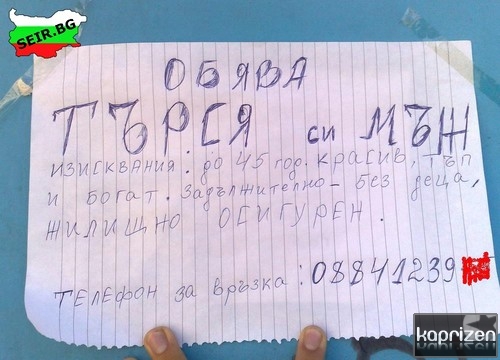 SEIR.BG
ОБЯВА
ТЪРСЯ си МЪЖ
изисквания: до 45 год. красив, тъп
и богат. Задължително - без деца,
жилищно осигурен.
Телефон за връзка: 08841239
kaprizen